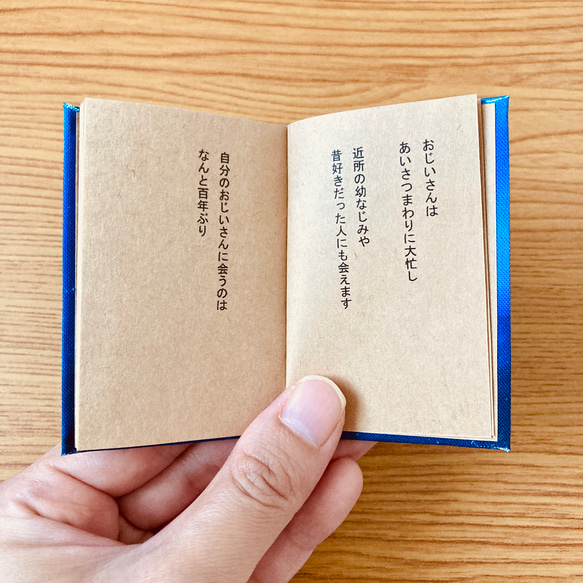 おじいさんは
あいさつまわりに大忙し
近所の幼なじみや
昔好きだった人にも会えます
自分のおじいさんに会うのは
なんと百年ぶり